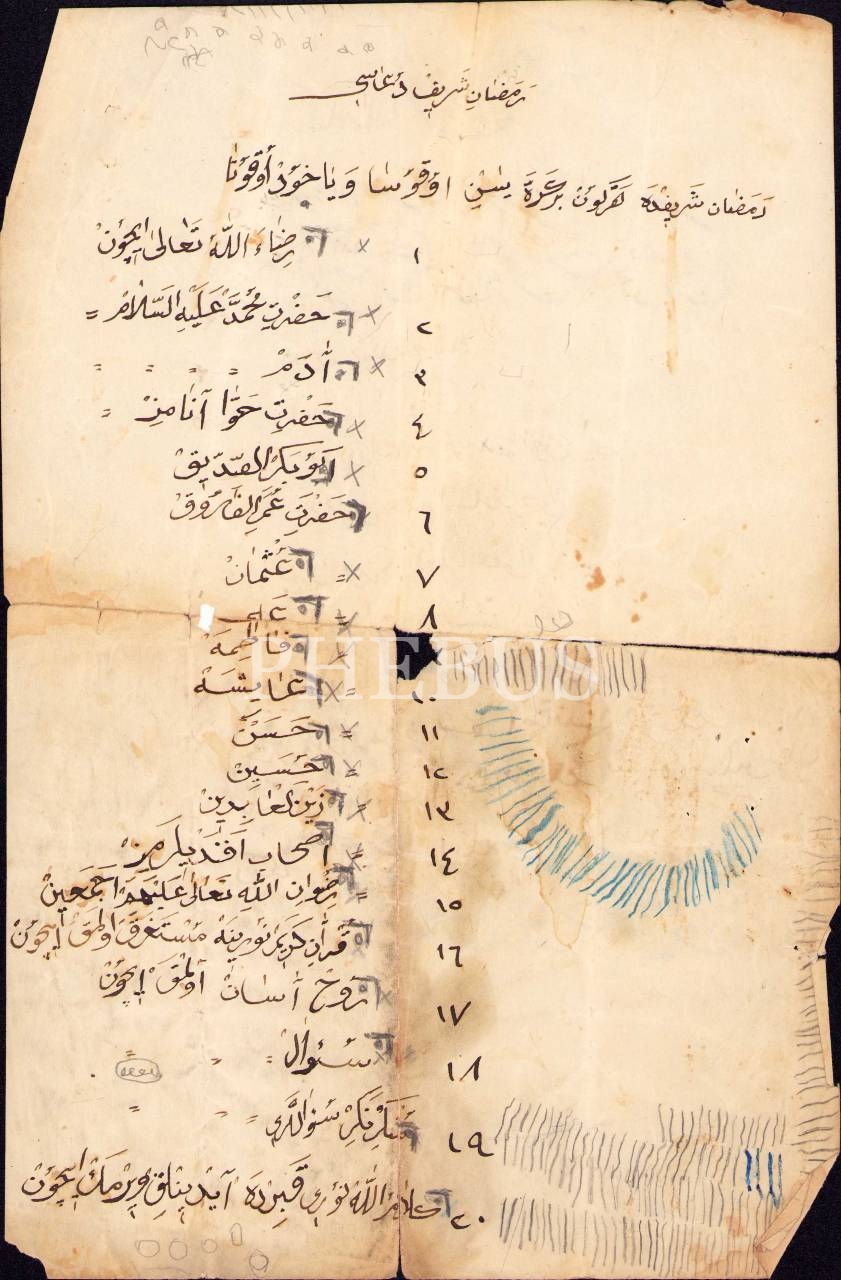 رمضان شريف دعاسى
رَمَضان شَريفْدَه هَرْكُونْ بِرْ عَرَه يٰسٓنِ اوُقوُسا وَياخوُدْ اُوقوُتا
١ رِضاءَ اللّٰهُ تَعالىٰ اِيچوُنْ
٢ حَضْرتِ مُحمَّدْ عَلَيْهِ السَّلامْ =
٣ آدَمْ = = = =
٤ حَضْرتِ حَوّا آنامِزْ =
٥ اَبوُ بَكَرْ الصّدّيقْ
٦ حَضْرتِ عُمَرِ الفارُوقْ
٧ عُثْمانْ =
٨ علي =
فاطِمَهْ
١٠ عايشَهْ =
١١ حَسَنْ =
١٢ حُسَيِنْ =
١٣ زَيْنَ لْعابِدينْ =
١٤ اصحاب اَفَنْديلَرِمِزْ =
١٥ رِضْوانِ اللّٰهِ تَعالىٰ عَلَيْهِمْ اَجْمَعينْ =
١٦ قُرآنِ كَريمْ نوُرينَهْ مُسْتَغْرَقْ اولمَقْ اِيچوُنْ
١٧ رُوحْ آسانْ اوُلمَقْ اِيچوُنْ
١٨ سُئوالْ = = =
١٩ مُنْكَرْ نَكِرْ سئواللَرى = = =
٢٠ كلامُ اللّٰهْ نوُرى قَبِرْدَه آيدينلِقْ ويرْمَكْ اِيچوُنْ
PHEBUS